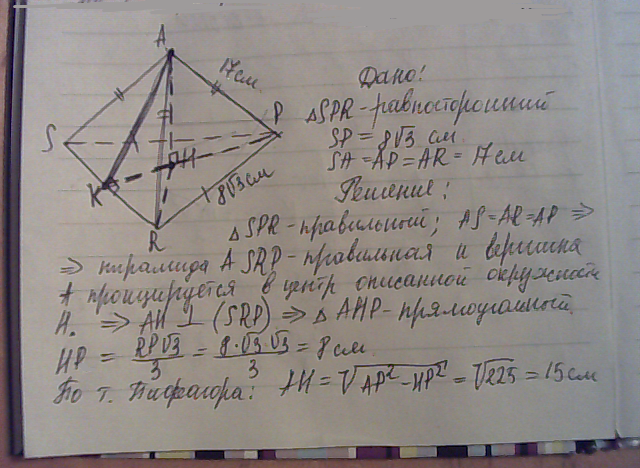 A
17см
Дано:
S
P
△SPR - равносторонний
SP = 8√3 см
H
SA = AP = AR = 17 см
K
8√3 см
Решение:
R
△SPR - правильный; AS = AR = AP ⇒
⇒ пирамида ASRP - правильная и вершина
A проицируется в центр описанной окружности
H. ⇒ AH ⊥ (SRP) ⇒ △AHP - прямоугольный.
HP = RP√3/3 = 8·√3√3/3 = 8 см
По т. Пифагора: AH = √AP² - HP² = √225 = 15 см